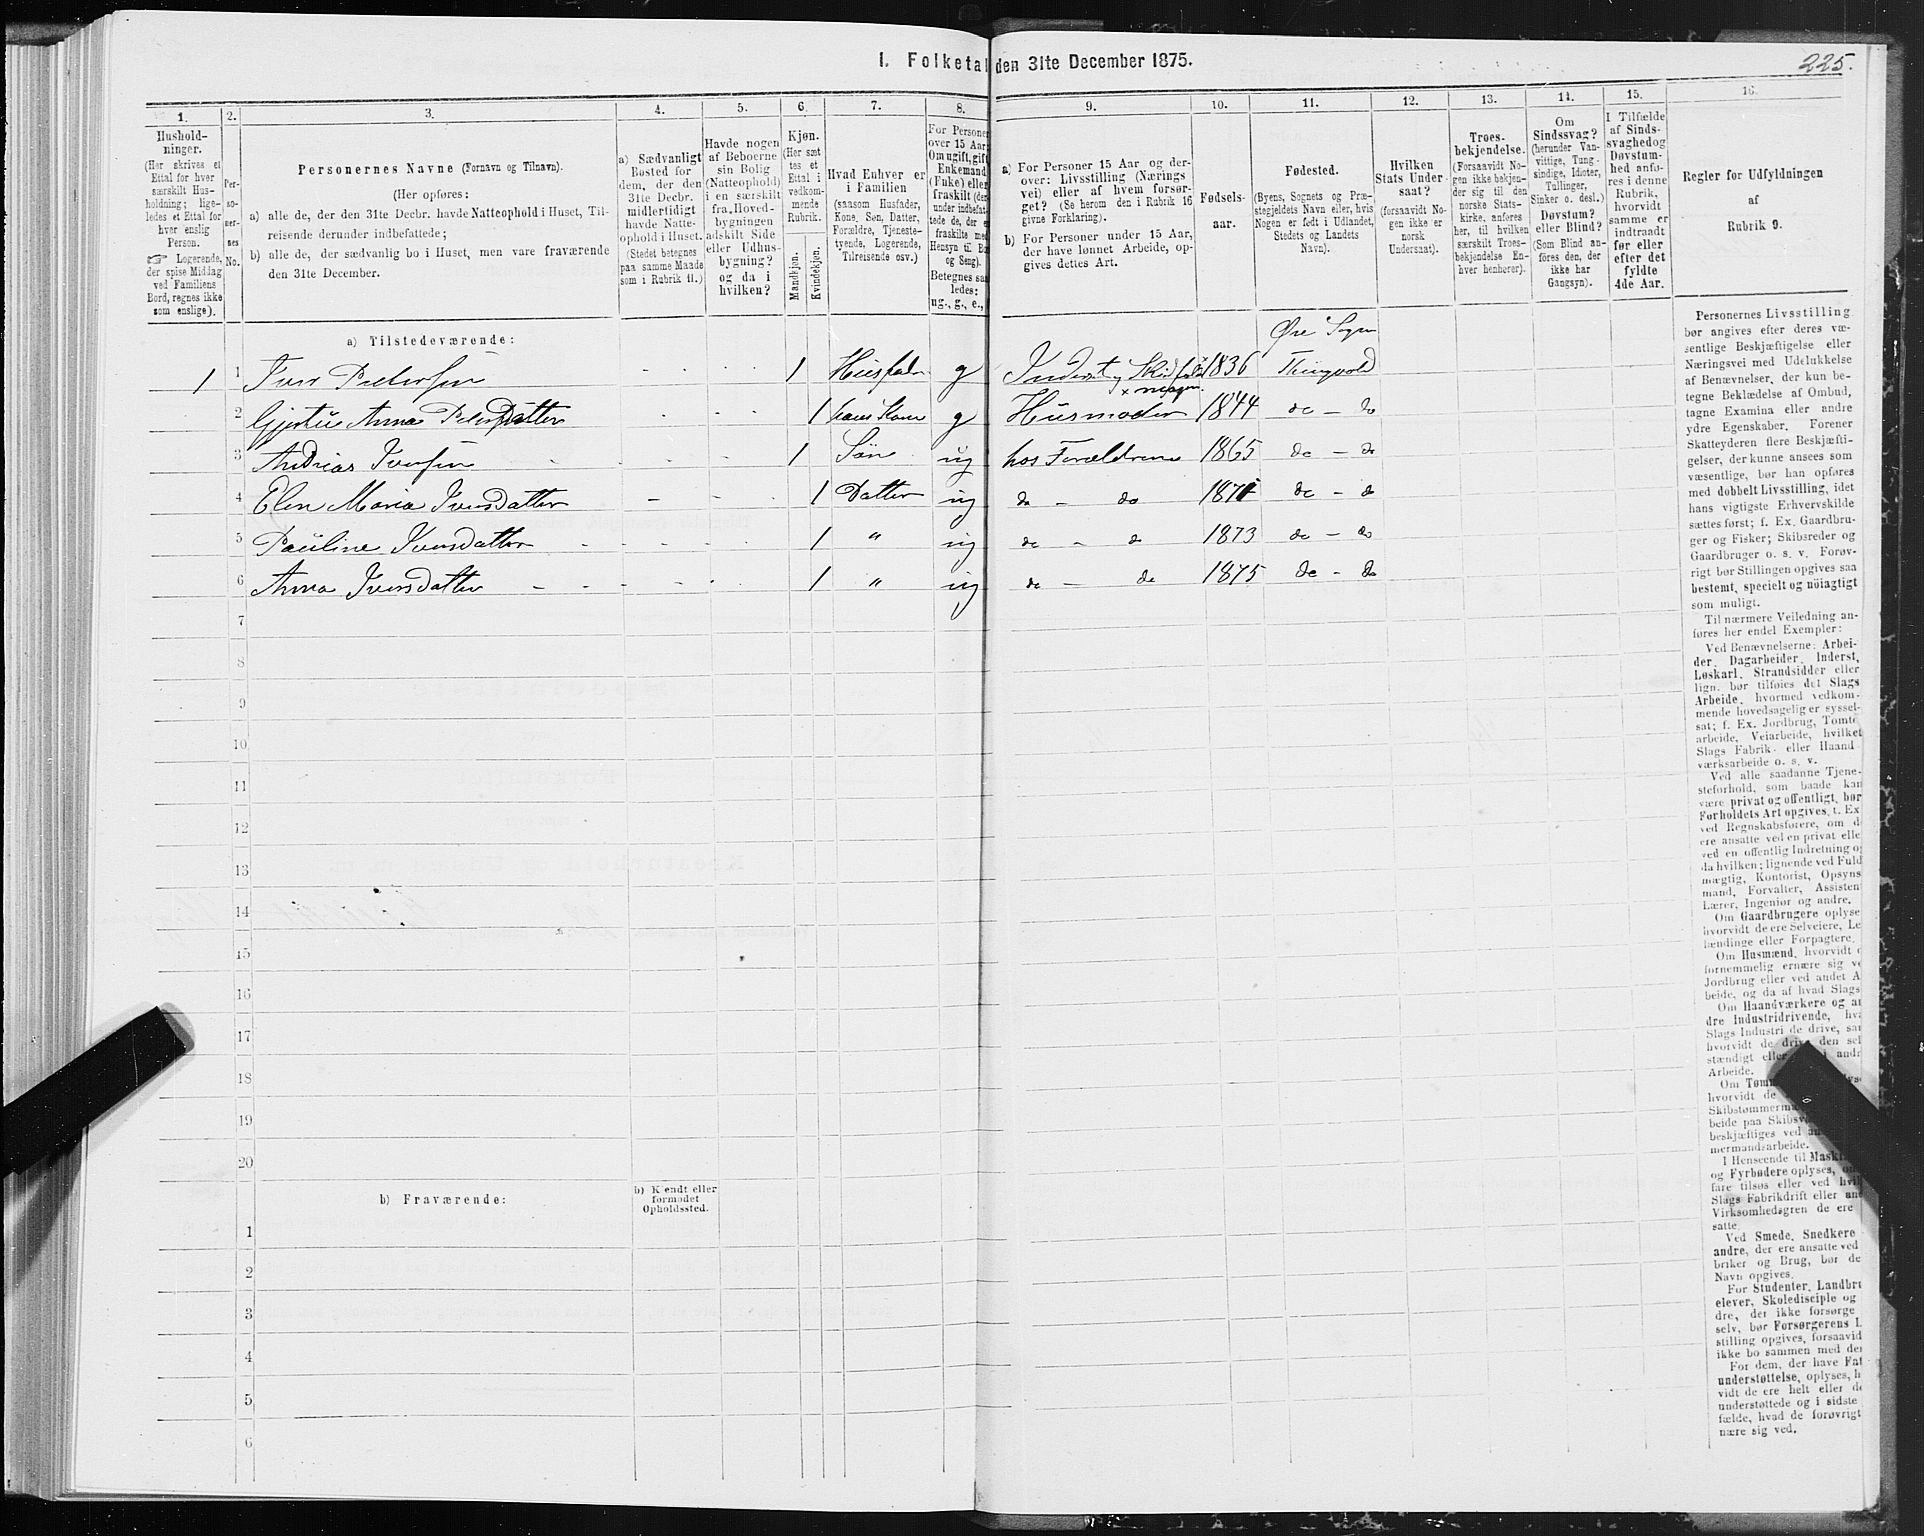 I. Folketal den 31te December 1875.
225.
1. 2. 3. 4. 5. 6. 7. 8. 9. 10. 11. 12. 13. 14. 15. 16.
Hushold-
ninger.
(Her skrives et
Ettal for hver
særskilt Hus-
holdning; lige-
ledes et Ettal for
hver enslig
Person.
☞ Logerende,
der spise Middag
ved Familiens
Bord, regnes ikke
som enslige).
Per-
so-
ner-
nes
No.
Personernes Navne (Fornavn og Tilnavn).
(Her opføres:
a) alle de, der den 31te Decbr. havde Natteophold i Huset, Til-
reisende derunder indbefattede;
b) alle de, der sædvanlig bo i Huset, men vare fraværende
den 31te December.
a) Sædvanligt
Bosted for
dem, der den
31te Decbr.
midlertidigt
havde Natte-
ophold i Huset.
(Stedet betegnes
paa samme Maade
som i Rubrik 11.)
Havde nogen
af Beboerne
sin Bolig
(Natteophold)
i en særskilt
fra Hoved-
bygningen
adskilt Side
eller Udhus-
bygning?
og da i
hvilken?
Kjøn.
(Her sæt
tes et
Ettal i
vedkom-
mende
Rubrik.
Mandkjøn.
Kvindekjøn.
Hvad Enhver er
i Familien
(saasom Husfader,
Kone, Søn, Datter,
Forældre, Tjeneste-
tyende, Logerende,
Tilreisende osv.)
For Personer
over 15 Aar:
Om ugift, gift
Enkemand
(Enke) eller
fraskilt (der
under indbefat-
tede de, der er
fraskilte med
Hensyn til Bo
og Seng).
Betegnes saa
ledes:
ug., g., e.,
a) For Personer 15 Aar og der-
over: Livsstilling (Nærings
vei) eller af hvem forsør-
get? (Se herom den i Rubrik 16
givne Forklaring).
b) For Personer under 15 Aar,
der have lønnet Arbeide, op-
gives dettes Art.
Fødsels-
aar.
Fødested.
(Byens, Sognets og Præ-
stegjeldets Navn eller, hvis
Nogen er født i Udlandet,
Stedets og Landets
Navn).
Hvilken
Stats Under-
saat?
(forsaavidt No-
gen ikke er
norsk
Undersaat).
Troes-
bekjendelse.
(Forsaavidt No-
gen ikke bekjen-
der sig til den
norske Stats-
kirke, anføres
her, til hvilken
særskilt Troes-
bekjendelse En-
hver henhører).
Om
Sindssvag?
(herunder Van-
vittige, Tung-
sindige, Idioter,
Tullinger,
Sinker o. desl.)
Døvstum?
eller Blind?
(Som Blind an-
føres den, der
ikke har
Gangsyn).
I Tilfælde
af Sinds-
svaghed og
Døvstum-
hed anfø-
res i denne
Rubrik,
hvorvidt
samme er
indtraadt
før eller
efter det
fyldte
4de Aar.
Regler for Udfyldningen
af
Rubrik 9.
a) Tilstedeværende:
Øre Sogn
1 1 Iver Pedersen 1 Husfader g Inderst 1836 Thingvold
2 Gjertru Anna Pedersdatter 1 hans Kone g Husmoder 1844 do - do
3 Andreas Iversen 1 Søn ug hos Forældrene 1865 do - do
4 Elen Maria Iversdatter 1 Datter ug do - do 1871 do - do
5 Pauline Iversdatter 1 " ug do - do 1873 do - do
6 Anna Iversdatter 1 " ug do - do 1875 do - do
7
8
9
10
11
12
13
14
15
16
17
18
19
20
b) Fraværende:
b) Kjendt eller
formodet
Opholdssted.
1
2
3
4
5
6
Personernes Livsstilling
bør angives efter deres væ-
sentlige Beskjæftigelse eller
Næringsvei med Udelukkelse
af Benævnelser, der kun be-
tegne Beklædelse af Ombud,
tagne Examina eller andre
ydre Egenskaber. Forener
Skatteyderen flere Beskjæfti-
gelser, der kunne ansees som
væsentlige, bør han opføres
med dobbelt Livsstilling, idet
hans vigtigste Erhvervskilde
sættes først; f. Ex. Gaardbru-
ger og Fisker; Skibsreder og
Gaardbruger o. s. v. Forøv-
rigt bør Stillingen opgives saa
bestemt, specielt og nöiagtigt
som muligt.
Til nærmere Veiledning an-
føres her endel Exempler:
Ved Benævnelserne: Arbei-
der, Dagarbeider, Inderst,
Løskarl, Strandsidder eller
lign. bør tilføies det Slags
Arbeide, hvormed vedkom-
mende hovedsagelig er syssel-
sat; f. Ex. Jordbrug, Tomte
arbeide, Veiarbeide, hvilket
Slags Fabrik- eller Haand-
værksarbeide o. s. v.
Ved alle saadanne Tjene-
steforhold, som baade kan
være privat og offentligt, bør
Forholdets Art opgives, t. Ex
ved Regnskabsførere, om d
ere ansatte ved en privat elle
ved en offentlig Indretning o
da hvilken; lignende ved Fuld
mægtig, Kontorist, Opsyns
mand, Forvalter, Assisten
Lærer, Ingeniør og andre.
Om Gaardbrugere oplyse
hvorvidt de ere Selveiere, Le
lændinge eller Forpagtere.
Om Husmænd, hvorvidt
fornemmelig ernære sig ve
Jordbrug eller ved andet A
beide, og da af hvad Slags
Om Haandværkere og an
dre Industridrivende, hva
Slags Industri de drive, sam
hvorvidt de drive den sel
stændigt eller i andr
Arbeide.
Om Tøm
hvorvidt de
Skibstømmerm
beide paa Skibsv
beskjæftiges ved an
mermandsarbeide.
I Henseende til Mask
og Fyrbødere oplyses, om
fare tilsøs eller ved hvil
Slags Fabrikdrift eller and
Virksomhedsgren de ere
satte.
Ved Smede, Snedkere
andre, der ere ansatte ved
briker og Brug, bør de
Navn opgives.
For Studenter, Landbru
elever, Skoledisciple og
dre, der ikke forsørge
selv, bør Forsørgerens L
stilling opgives, forsaavid
ikke bo sammen med den
For dem, der have Fat
understøttelse, oplyses, h
vidt de ere helt eller de
understøttede og i sidste
fælde, hvad de forøvrigt
nære sig ved.